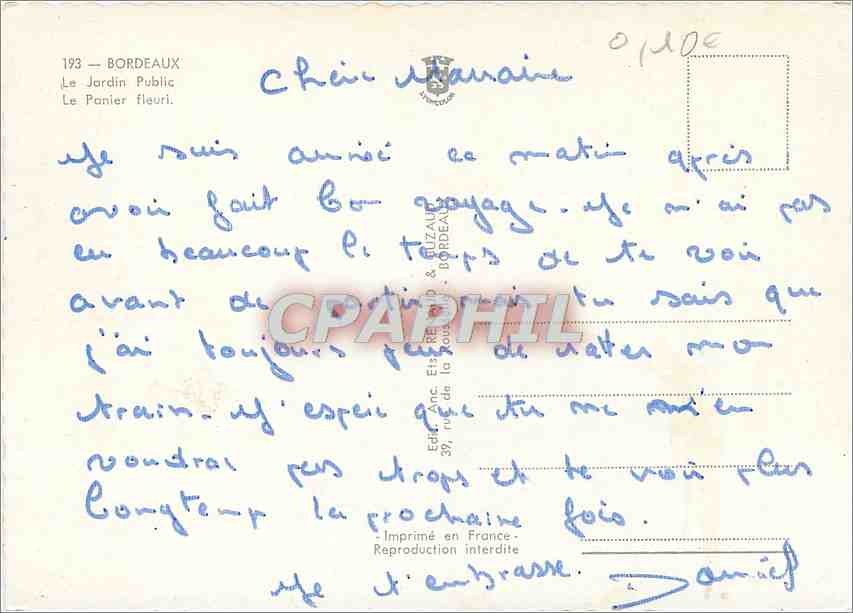 0,10€
193 — BORDEAUX
Le Jardin Public
Le Panier fleuri.
Chère
Je suis arrivé ce matin après
avoir fait bon voyage. Je n'ai pas
eu beaucoup le temps de te voir
avant de partir mais tu sais que
j'ai toujours peur de rater mon
train. J'espère que tu ne m'en
voudras pas trops et te voir plus
longtemp la prochaine fois.
Je t'embrasse. Daniel
CPAPHIL
39, rue de la Rousselle - BORDEAUX
- Imprimé en France -
Reproduction interdite